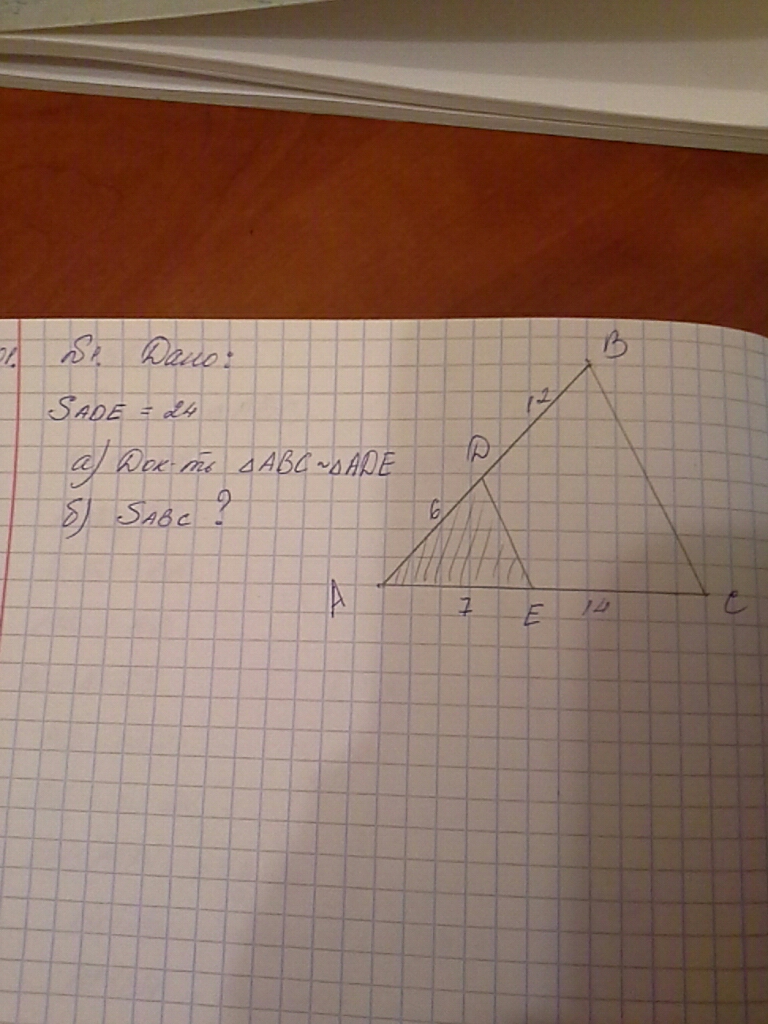 №1. Дано:
SADE = 24
а) Док-ть ΔABC~ΔADE
б) SABC ?
B
12
D
6
A 7 E 14 C